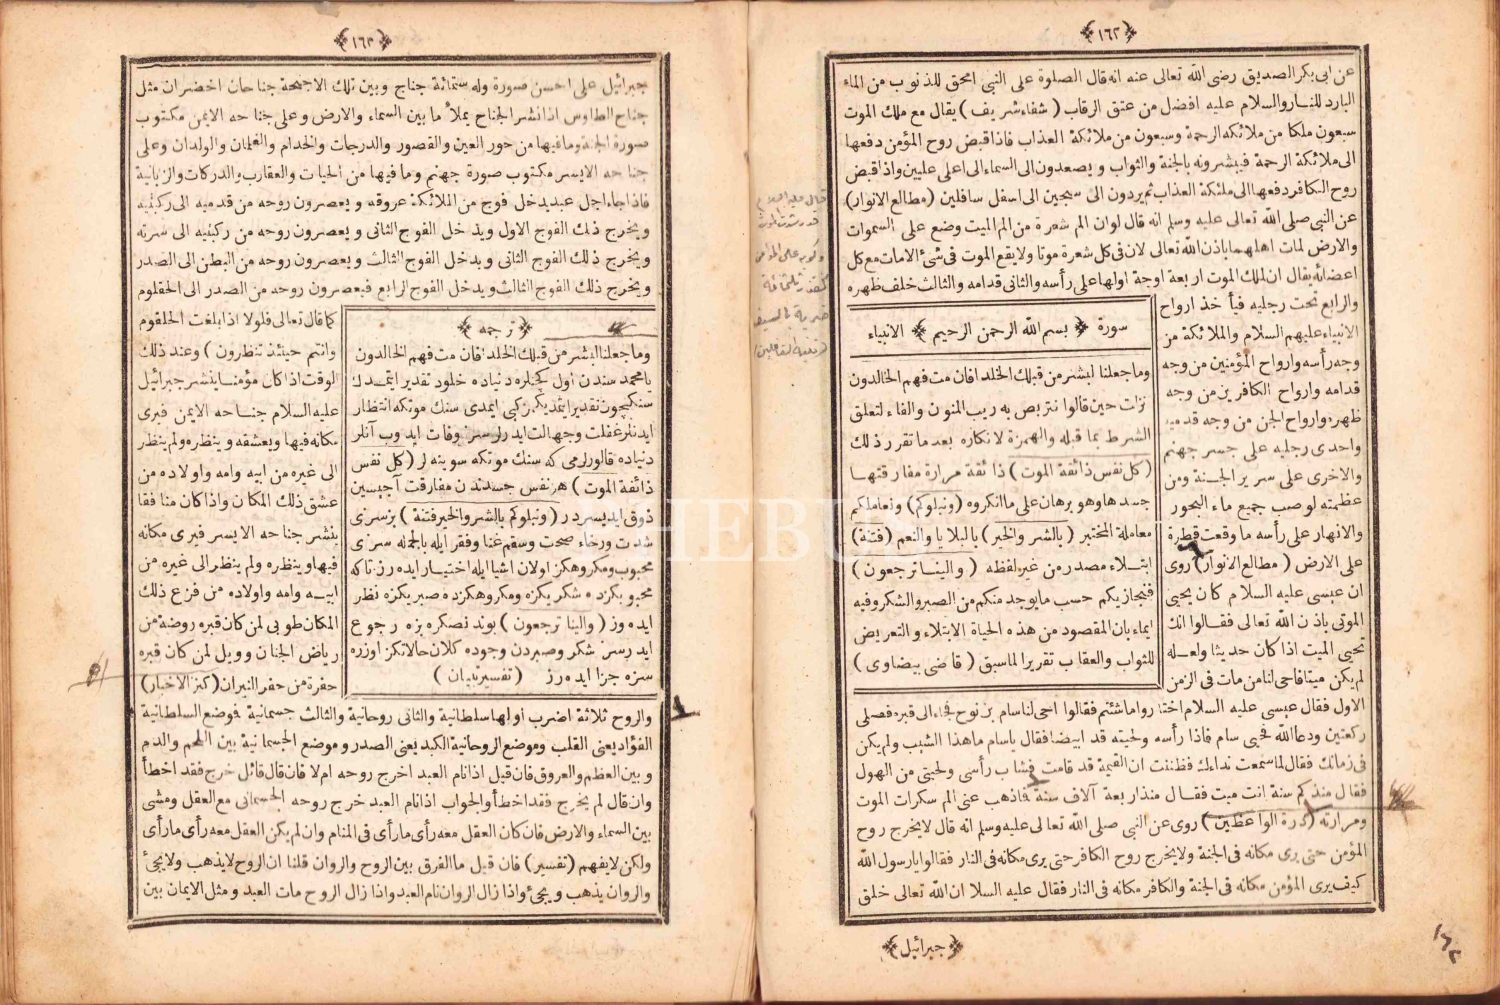 ﴿١٦٢﴾
عن ابى بكر الصديق رضى الله تعالى عنه انه قال الصلوة على النبى امحق للذنوب من الماء
البارد للنار والسلام عليه افضل من عتق الرقاب ( شفاء شريف ) يقال مع ملك الموت
سبعون ملكا من ملائكة الرحمة وسبعون من ملائكة العذاب فاذا قبض روح المؤمن دفعها
الى ملائكة الرحمة فيبشرونه بالجنة والثواب ويصعدون الى السماء الى اعلى عليين واذا قبض
روح الكافر دفعها الى ملئكة العذاب ثم يردون الى سجين الى اسفل سافلين (مطالع الانوار)
عن النبى صلى الله تعالى عليه وسلم انه قال لو ان الم شعرة من الم الميت وضع على السموات
والارض لمات اهلهما باذن الله تعالى لان فى كل شعرة موتا ولا يقع الموت فى شئ الا مات مع كل
اعضائه يقال ان لملك الموت اربعة اوجة اولها على رأسه والثانى قدامه والثالث خلف ظهره
والرابع تحت رجليه فيأخذ ارواح
الانبياء عليهم السلام والملائكة من
وجه رأسه وارواح المؤمنين من وجه
قدامه وارواح الكافرين من وجه
ظهره وارواح الجن من وجه قدميه
واحدى رجليه على جسر جهنم
والاخرى على سرير الجنة ومن
عظمته لو صب جميع ماء البحور
والانهار على رأسه ما وقعت قطرة
على الارض ( مطالع الانوار) روى
ان عيسى عليه السلام كان يحيى
الموتى باذن الله تعالى فقالوا انك
تحيى الميت اذا كان حديثا ولعله
لم يكن ميتا فاحى لنا من مات فى الزمن
سورة ﴿ بسم الله الرحمن الرحيم ﴾ الانبياء
وما جعلنا لبشر من قبلك الخلد افان مت فهم الخالدون
نزلت حين قالوا نتربص به ريب المنون والفاء لتعلق
الشرط بما قبله والهمزة لانكاره بعد ما تقرر ذلك
(كل نفس ذائقة الموت) ذائقة مرارة مفارقتها
جسدها وهو برهان على ما انكروه (ونبلوكم) ونعاملكم
معاملة المختبر (بالشر والخير) بالبلايا والنعم (فتنة)
ابتلاء مصدر من غير لفظه ( والينا ترجعون )
فنجازيكم حسب ما يوجد منكم من الصبر والشكر وفيه
ايماء بان المقصود من هذه الحياة الابتلاء والتعريض
للثواب والعقاب تقريرا لما سبق ( قاضى بيضاوى )
الاول فقال عيسى عليه السلام اختاروا ما شئتم فقالوا احى لنا سام بن نوح فجاء الى قبره فصلى
ركعتين ودعا الله فحيى سام فاذا رأسه ولحيته قد ابيضا فقال يا سام ما هذا الشيب ولم يكن
فى زمانك فقال لما سمعت نداءك فظننت ان القيمة قد قامت فشاب رأسى ولحيتى من الهول
فقال منذ كم سنة انت ميت فقال منذ اربعة آلاف سنة فاذهب عنى الم سكرات الموت
ومرارته (درة الواعظين) روى عن النبى صلى الله تعالى عليه وسلم انه قال لا يخرج روح
المؤمن حتى يرى مكانه فى الجنة ولا يخرج روح الكافر حتى يرى مكانه فى النار فقالوا يا رسول الله
كيف يرى المؤمن مكانه فى الجنة والكافر مكانه فى النار فقال عليه السلا ان الله تعالى خلق
﴿جبرائيل﴾
﴿١٦٣﴾
جبرائيل على احسن صورة وله ستمائة جناح وبين تلك الاجنحة جناحان اخضران مثل
جناح الطاوس اذا نشر الجناح يملأ ما بين السماء والارض وعلى جناحه الايمن مكتوب
صورة الجنة وما فيها من حور العين والقصور والدرجات والخدام والغلمان والولدان وعلى
جناحه الايسر مكتوب صورة جهنم وما فيها من الحيات والعقارب والدركات والزبانية
فاذا جاء اجل عبد يدخل فوج من الملائكة عروقه ويعصرون روحه من قدميه الى ركبتيه
ويخرج ذلك الفوج الاول ويدخل الفوج الثانى ويعصرون روحه من ركبتيه الى سرته
ويخرج ذلك الفوج الثانى ويدخل الفوج الثالث ويعصرون روحه من البطن الى الصدر
ويخرج ذلك الفوج الثالث ويدخل الفوج الرابع فيعصرون روحه من الصدر الى الحقلوم
كما قال تعالى فلولا اذا بلغت الحلقوم
وانتم حينئذ تنظرون ) وعند ذلك
الوقت اذا كان مؤمنا ينشر جبرائيل
عليه السلام جناحه الايمن فيرى
مكانه فيها ويعشقه وينظره ولم ينظر
الى غيره من ابيه وامه واولاده من
عشق ذلك المكان واذا كان منافقا
ينشر جناحه الايسر فيرى مكانه
فيها وينظره ولم ينظر الى غيره من
ابيه وامه واولاده من فزع ذلك
المكان طوبى لمن كان قبره روضة من
رياض الجنان وويل لمن كان قبره
حفرة من حفر النيران (كنز الاخبار)
﴿ ترجمه ﴾
وما جعلنا لبشر من قبلك الخلد افان مت فهم الخالدون
يا محمد سندن اول كچنلره دنياده خلود تقدير ايتمدك
سنكيچون تقدير ايتمديكمز كبى ايمدى سنك موتكه انتظار
ايدنلر غفلت وجهالت ايدرلر سن وفات ايدوب آنلر
دنياده قالورلرمى كه سنك موتكه سوينه لر (كل نفس
ذائقة الموت) هر نفس جسدندن مفارقت آجيسين
ذوق ايديسيدر (ونبلوكم بالشر والخير فتنة) بز سزى
شدت ورخاء صحت وسقم غنا وفقر ايله بالجمله سزى
محبوب ومكروهكز اولان اشيا ايله اختيار ايده رز تا كه
محبوبكزده شكريكزه ومكروهكزده صبريكزه نظر
ايده وز (والينا ترجعون) بوندنصكره بزه رجوع
ايدرسز شكر وصبردن وجوده كلان حالاتكز اوزره
سزه جزا ايده رز ( تفسير تبيان )
والروح ثلاثة اضرب اولها سلطانية والثانى روحانية والثالث جسمانية فوضع السلطانية
الفؤاد يعنى القلب وموضع الروحانية الكبد يعنى الصدر وموضع الجسمانية بين اللحم والدم
وبين العظم والعروق فان قيل اذا نام العبد اخرج روحه ام لا فان قال قائل خرج فقد اخطأ
وان قال لم يخرج فقد اخطأ والجواب اذا نام العبد خرج روحه الجسمانى مع العقل ومشى
بين السماء والارض فان كان العقل معه رأى ما رأى فى المنام وان لم يكن العقل معه رأى ما رأى
ولكن لا يفهم (تفسير) فان قيل ما الفرق بين الروح والروان قلنا ان الروح لا يذهب ولا يجئ
والروان يذهب ويجئ واذا زال الروان نام العبد واذا زال الروح مات العبد ومثل الايمان بين